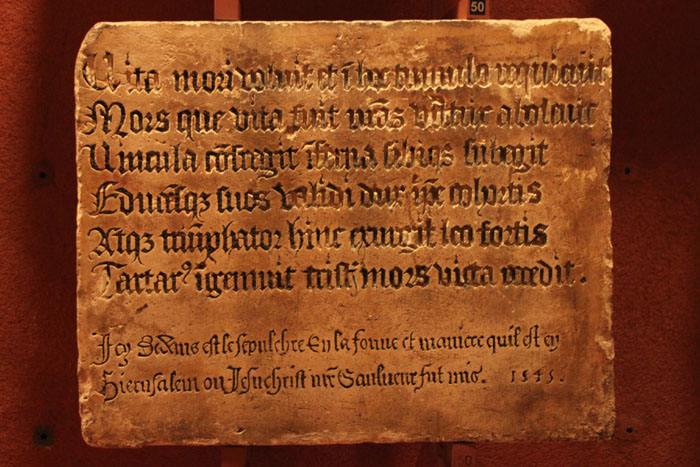 50
Vita mori voluit et ī hoc tumulo requievit
Mors que vita fuit abolevit
Vincula cōfregit īferna sibiqȝ subegit
Educētqȝ suos validi dux ip̄e cohortis
Atqȝ triūphator hinc exurgit leo fortis
Tartarꝰ īgemuit mors victa recedit.
Icy Dedans est le sepulchre En la forme et maniere quil est en
Hierusalem ou Jesuchrist nr̄e Saulueur fut mis. 1545.
50